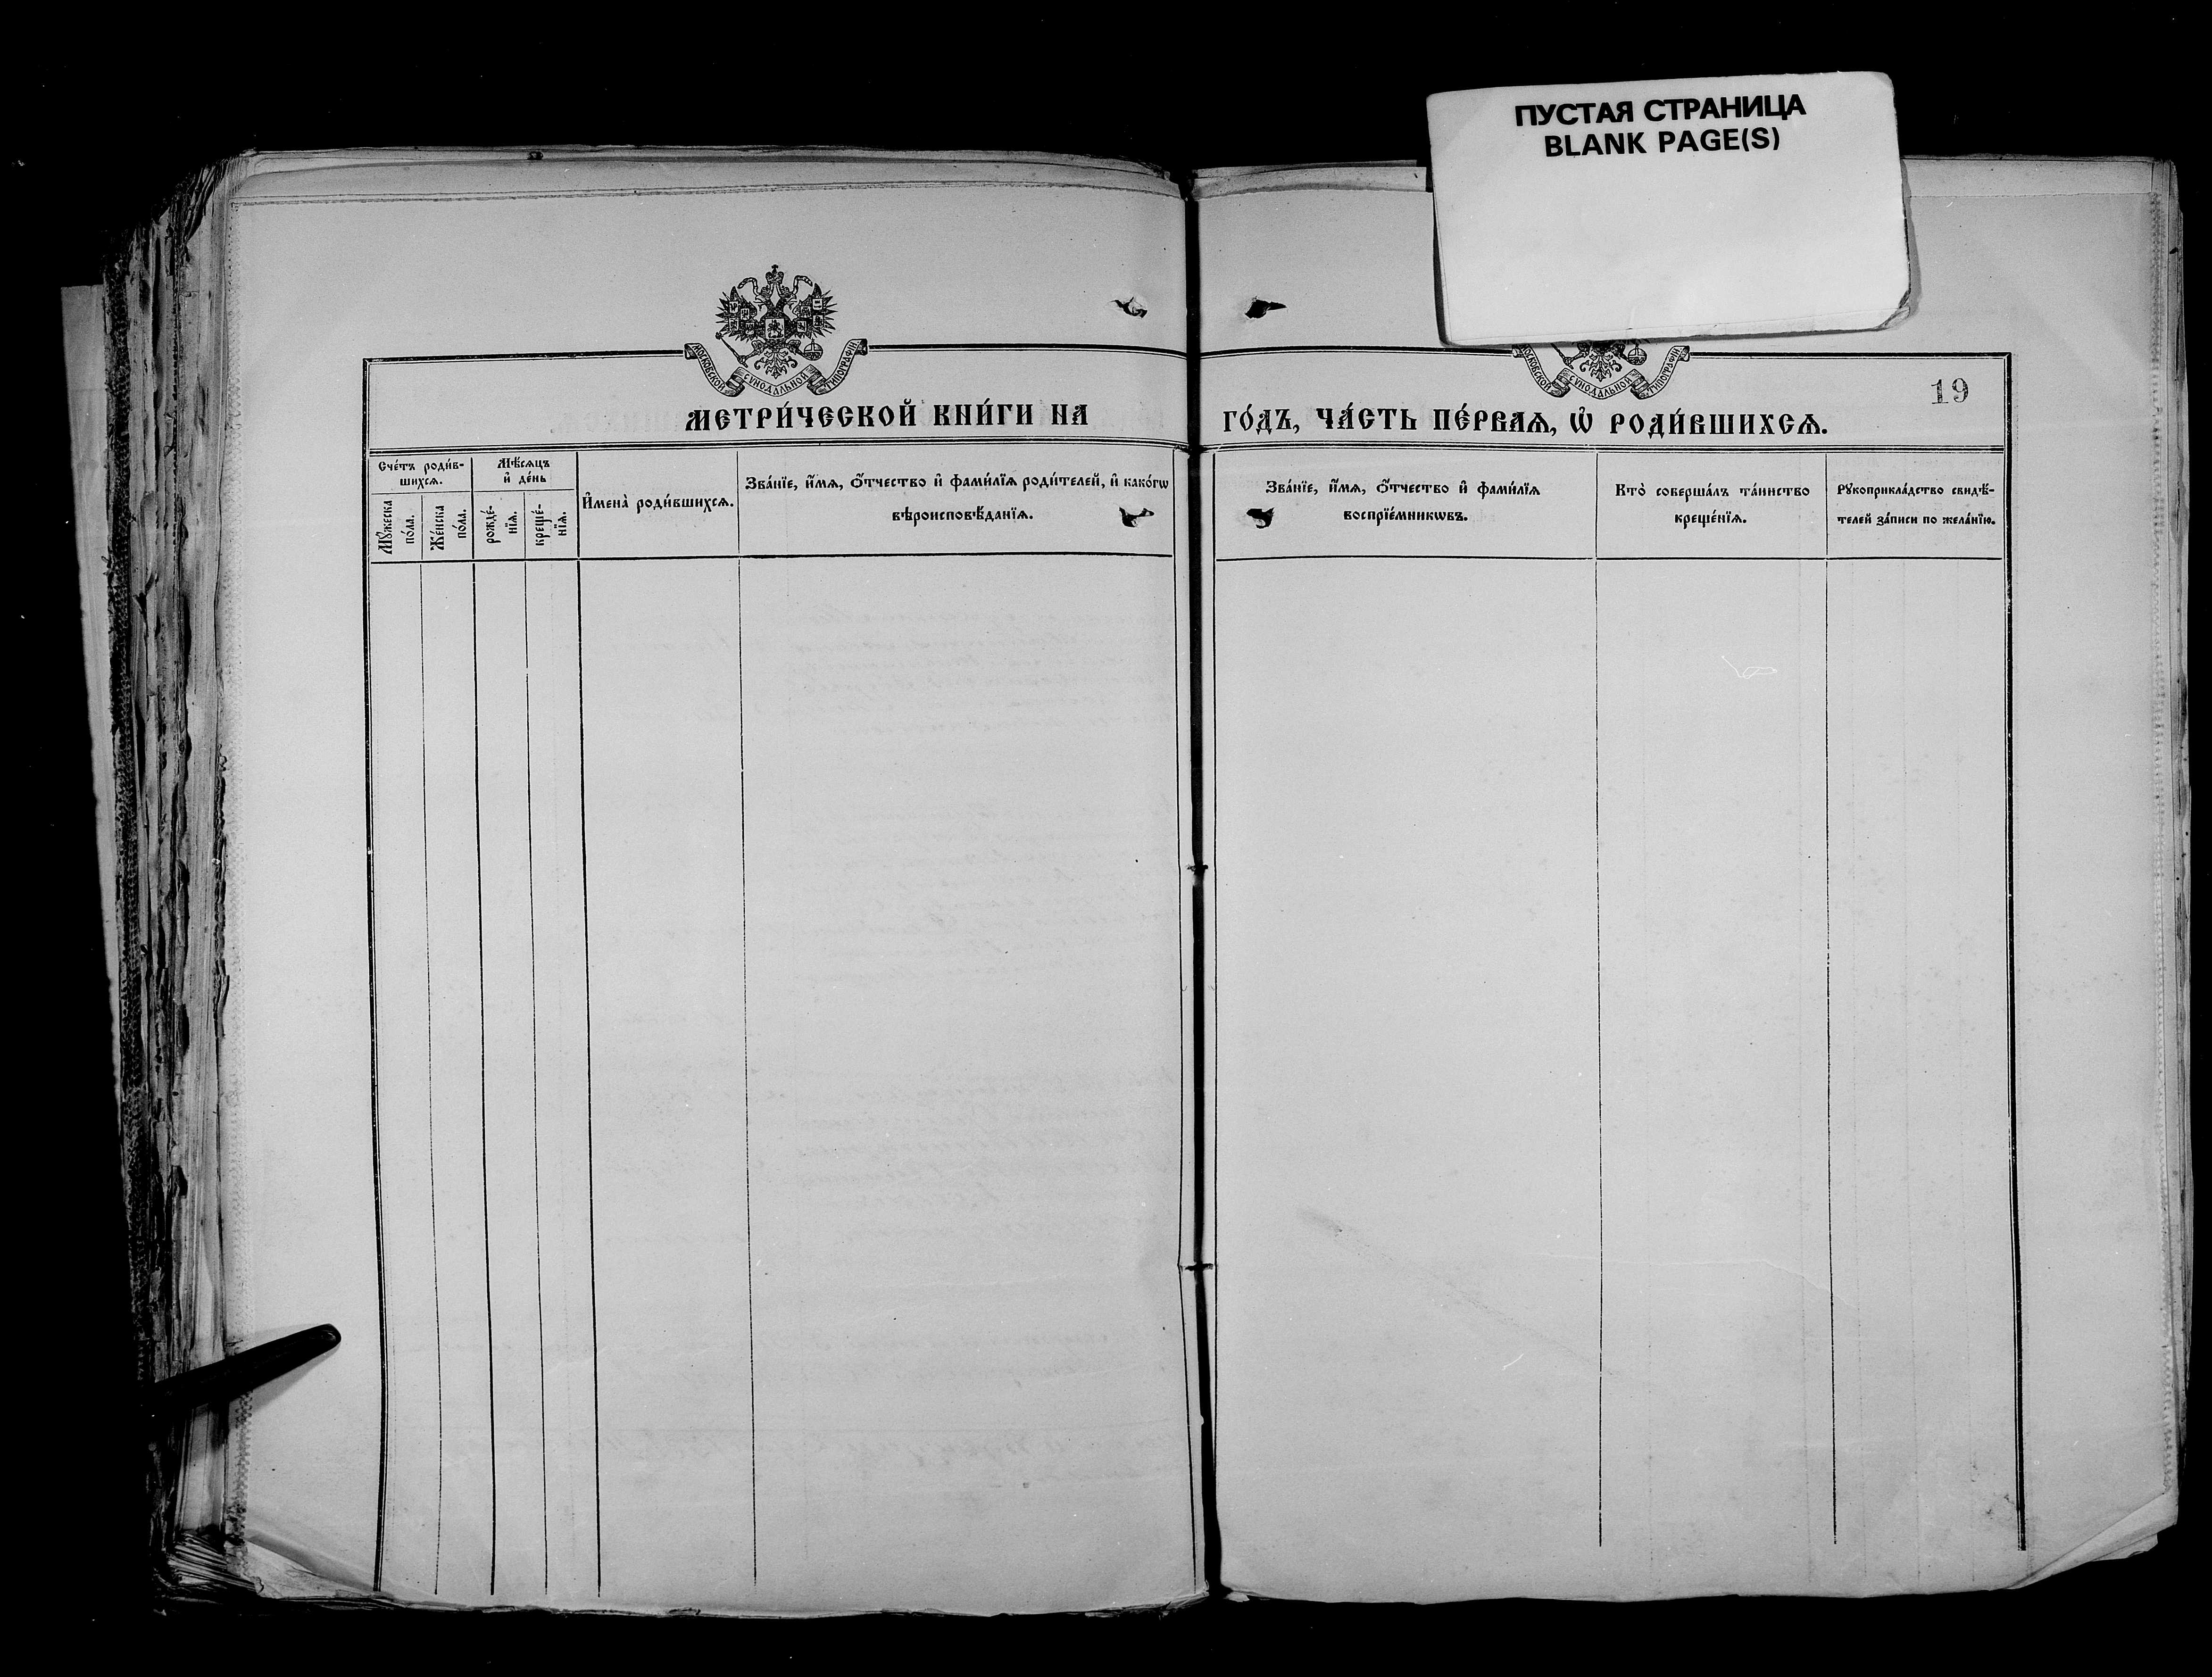 ПУСТАЯ СТРАНИЦА
BLANK PAGE(S)
МОСКОВСКОЙ СУНОДАЛЬНОЙ ТИПОГРАФІИ
МОСКОВСКОЙ СУНОДАЛЬНОЙ ТИПОГРАФІИ
19
МЕТРИ́ЧЕСКОЙ КНИ́ГИ НА
ГО́ДЪ, ЧА́СТЬ ПЕ́РВАѦ, Ѡ҆ РОДИ́ВШИХСѦ.
Сче́тъ роди́в-
шихсѧ.
Мꙋ́жеска
по́ла.
Же́нска
по́ла.
Мѣ́сѧцъ
и҆ де́нь
рожде́-
нїѧ.
креще́-
нїѧ.
И҆мена̀ роди́вшихсѧ.
Зва́нїе, и҆́мѧ, ѻ҆́тчество и҆ фами́лїѧ роди́телей, и҆ како́гѡ
вѣроисповѣ́данїѧ.
Зва́нїе, и҆́мѧ, ѻ҆́тчество и҆ фами́лїѧ
воспрїе́мникѡвъ.
Кто̀ соверша́лъ та́инство
креще́нїѧ.
Рꙋкоприкла́дство свидѣ́-
телей за́писи по жела́нїю.